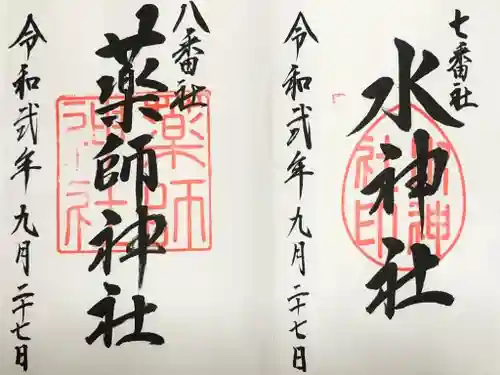 七番社
水神社
令和弐年九月二十七日
八番社
薬師神社
令和弐年九月二十七日